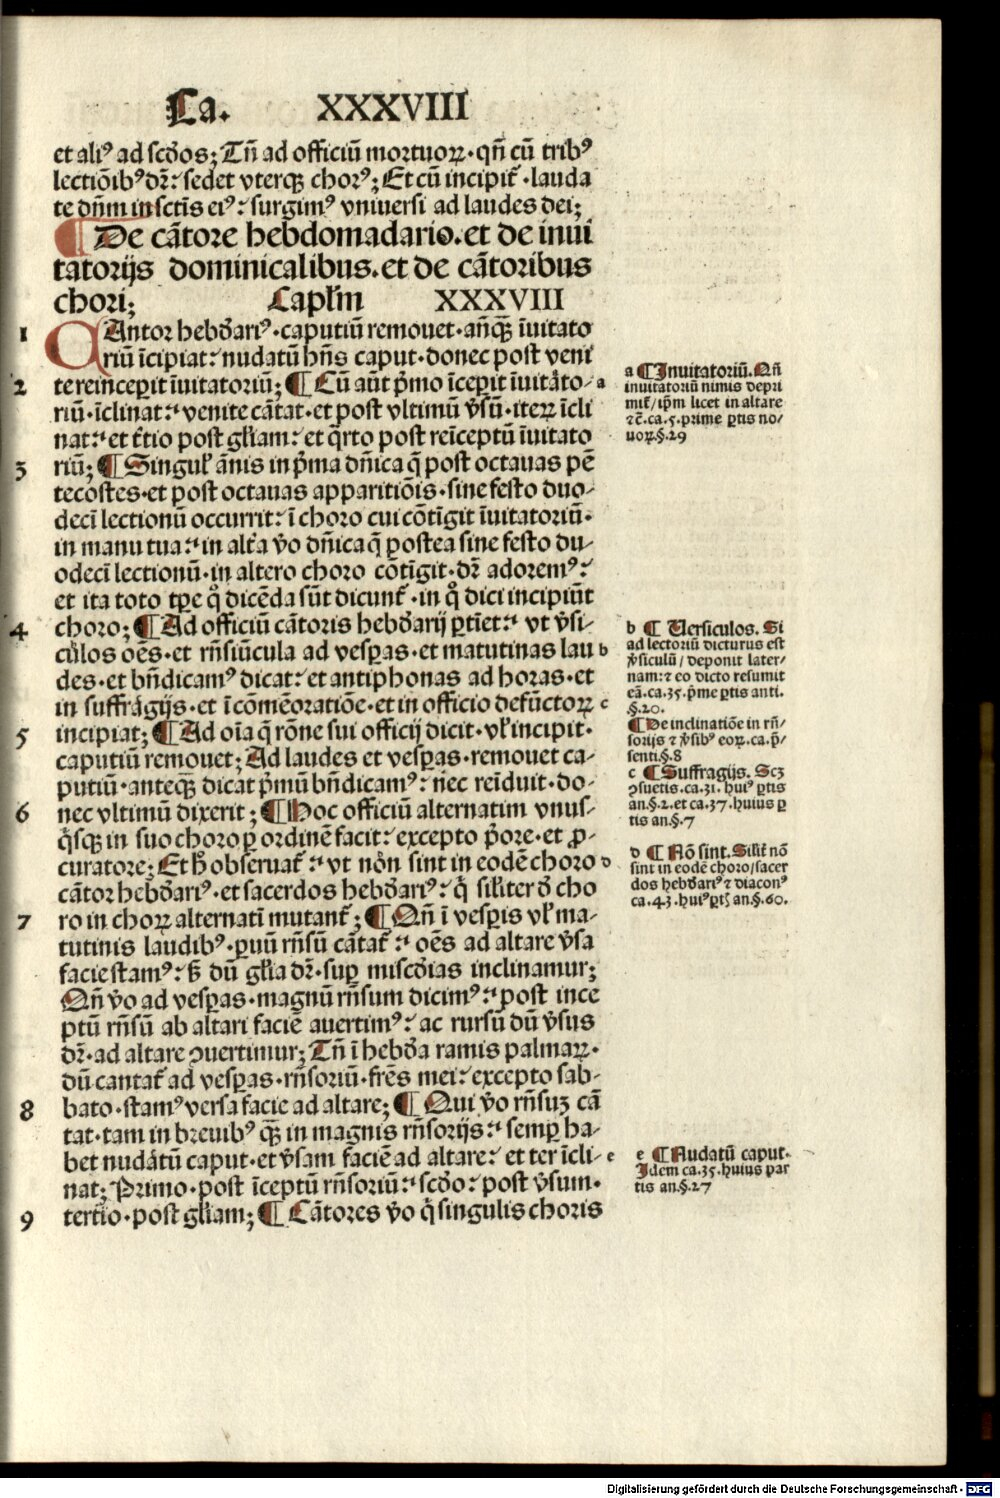 Ca. XXXVIII
et aliꝰ ad scd̄os; Tn̄ ad officiū mortuoꝝ · qn̄ cū tribꝰ
lectiōibꝰ dr̄: sedet vterqꝫ chorꝰ; Et cū incipit̄ · lauda
te dn̄m in sct̄is eiꝰ: surgimꝰ vniuersi ad laudes dei;
¶ De cātore hebdomadario. et de inui
tatorijs dominicalibus. et de cātoribus
chori; Caplm̄ XXXVIII
1 CAntor hebd̄ariꝰ · caputiū remouet · an̄qꝫ īuitato
riū īcipiat: nudatū hn̄s caput · donec post veni
2 te reinceperit īuitatoriū; ¶ Cū aūt pͥmo īceperit īuitāto- a
riū · īclinat: venite cātat · et post vltimū v̄sū · iteꝝ īcli
nat: et t̄tio post gl̄iam: et qͣrto post reīceptū īuitato
3 riū; ¶ Singul̄ ānis in pͥma dn̄ica q̄ post octauas pē
tecostes · et post octauas apparitiōis · sine festo duo-
decī lectionū occurrit: ī choro cui cōtīgit īuitatoriū ·
in manu tua: in alt̄a v̄o dn̄ica q̄ postea sine festo du-
odecī lectionū · in altero choro cōtīgit · dr̄ adoremꝰ:
et ita toto tp̄e qͦ dicēda sūt dicunt̄ · in qͦ dici incipiūt
4 choro; ¶ Ad officiū cātoris hebd̄arij ꝑtīet: vt v̄si-
culos oēs · et rn̄siūcula ad vesꝑas · et matutinas lau b
des · et bn̄dicamꝰ dicat: et antiphonas ad horas · et
in suffragijs · et ī cōmēoratiōe · et in officio defūctoꝝ c
5 incipiat; ¶ Ad oīa q̄ rōne sui officij dicit · vl̄ incipit ·
caputiū remouet; Ad laudes et vesꝑas · remouet ca-
putiū · anteqꝫ dicat pͥmū bn̄dicamꝰ: nec reīduit · do-
6 nec vltimū dixerit; ¶ Hoc officiū alternatim vnus-
qͥsqꝫ in suo choro ꝑ ordinē facit: excepto pͥore · et ꝓ-
curatore; Et h̄ obseruat̄: vt nōn sint in eodē choro d
cātor hebd̄ariꝰ · et sacerdos hebd̄ariꝰ: qͥ sil̄iter d̄ cho
7 ro in choꝝ alternatī mutant̄; ¶ Qn̄ ī vesꝑis vl̄ ma-
tutinis laudibꝰ · ꝑuū rn̄sū cātat̄: oēs ad altare v̄sa
facie stamꝰ: sꝫ dū gl̄ia dr̄ · suꝑ misc̄dias inclinamur;
Qn̄ v̄o ad vesꝑas · magnū rn̄sum dicimꝰ: post ince
ptū rn̄sū ab altari faciē auertimꝰ: ac rursū dū v̄sus
dr̄ · ad altare ꝯuertimur; Tn̄ ī hebd̄a ramis palmaꝝ ·
dū cantat̄ ad vesꝑas · rn̄soriū · fr̄es mei: excepto sab-
8 bato · stamꝰ versa facie ad altare; ¶ Qui v̄o rn̄suꝫ cā
tat · tam in breuibꝰ qꝫ in magnis rn̄sorijs: semꝑ ha-
bet nudātū caput · et v̄sam faciē ad altare: et ter īcli- e
nat; Primo · post īceptū rn̄soriū: scd̄o: post v̄sum ·
9 tertio · post gl̄iam; ¶ Cātores v̄o qͥ singulis choris
a ¶ Inuitatoriū. Qn̄
inuitatoriū nimis depri
mit̄/ ip̄m licet in altare
⁊c̄. ca. 5. prime ꝑtis no/
uoꝝ. §. 29
b ¶ Uersiculos. Si
ad lectoriū dicturus est
v̄siculū / deponit later/
nam: ⁊ eo dicto resumit
eā. ca. 35. pͥme ꝑtis anti.
§. 20.
¶ De inclinatiōe in rn̄/
sorijs ⁊ v̄sibꝰ eoꝝ. ca. p̄/
senti. §. 8
c ¶ Suffragijs. Scꝫ
ꝯsuetis. ca. 31. huiꝰ ꝑtis
an. §. 2. et ca. 37. huius ꝑ
tis an. §. 7
d ¶ Nō sint. Silit̄ nō
sint in eodē choro/ sacer
dos hebd̄ariꝰ ⁊ diaconꝰ
ca. 43. huiꝰ ꝑtꝭ an. §. 60.
e ¶ Nudatū caput.
Idem ca. 35. huius par
tis an. §. 27
Digitalisierung gefördert durch die Deutsche Forschungsgemeinschaft - DFG